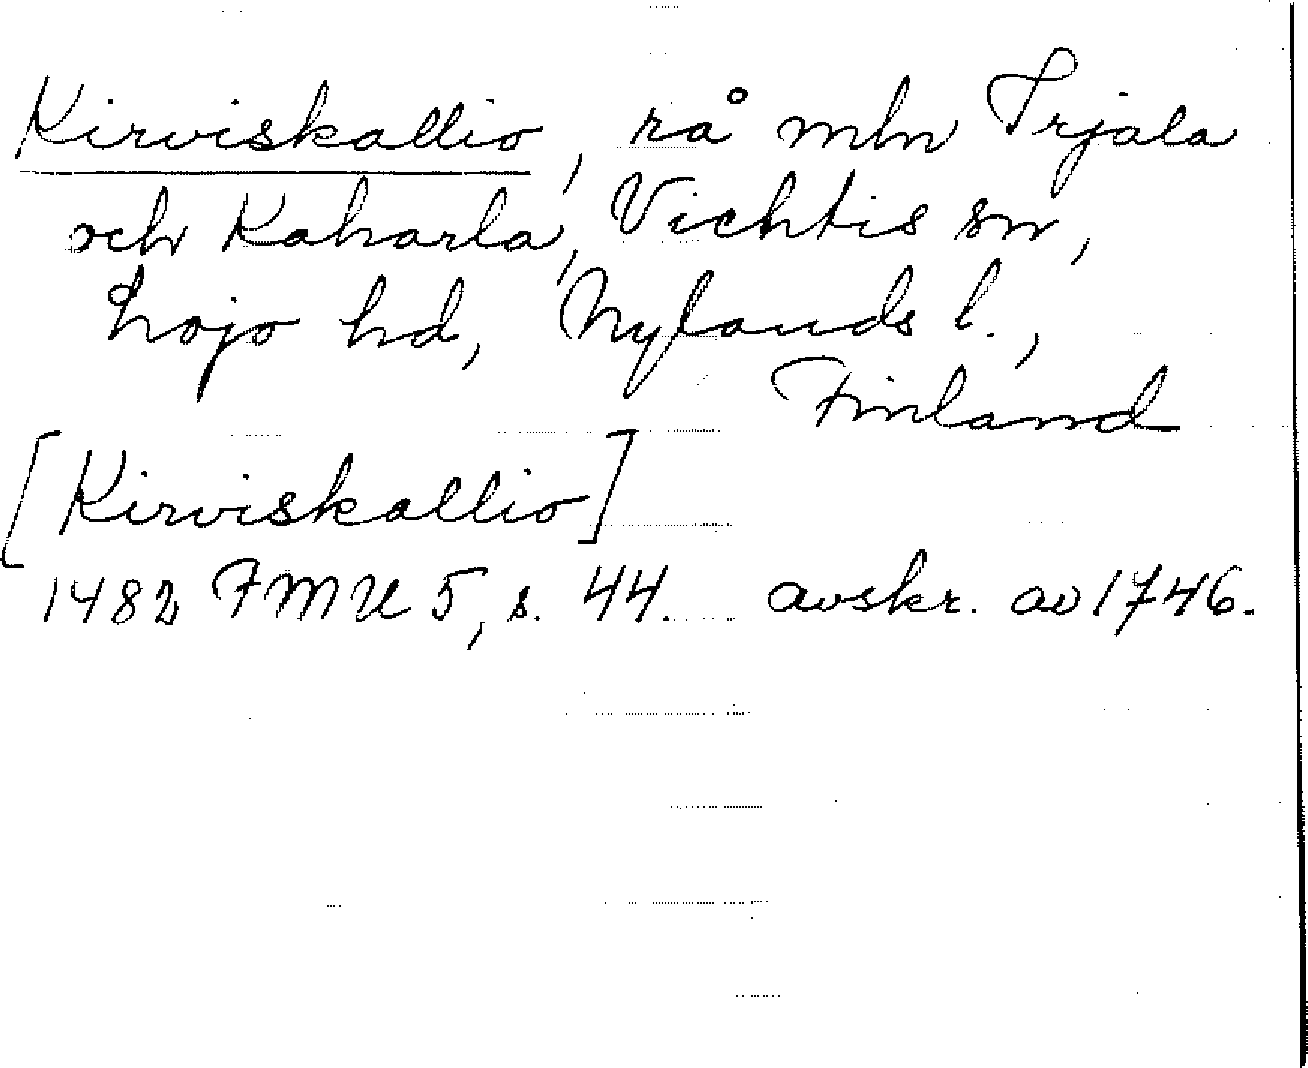 Kirviskallio, rå mln Irjala
och Kaharla, Vichtis sn,
Lojo hd, Nylands l.,
Finland
[Kirviskallio]
1482 FMU 5, s. 44. avskr. av 1746.